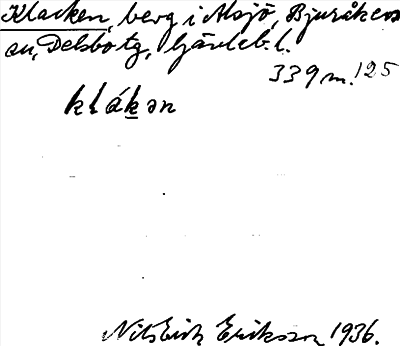 Klacken, berg i Alsjö, Bjuråkers
sn, Delsbo tg, Gävleb. l.
339 m. 125
klák̲ən
Nils Erik Eriksson 1936.